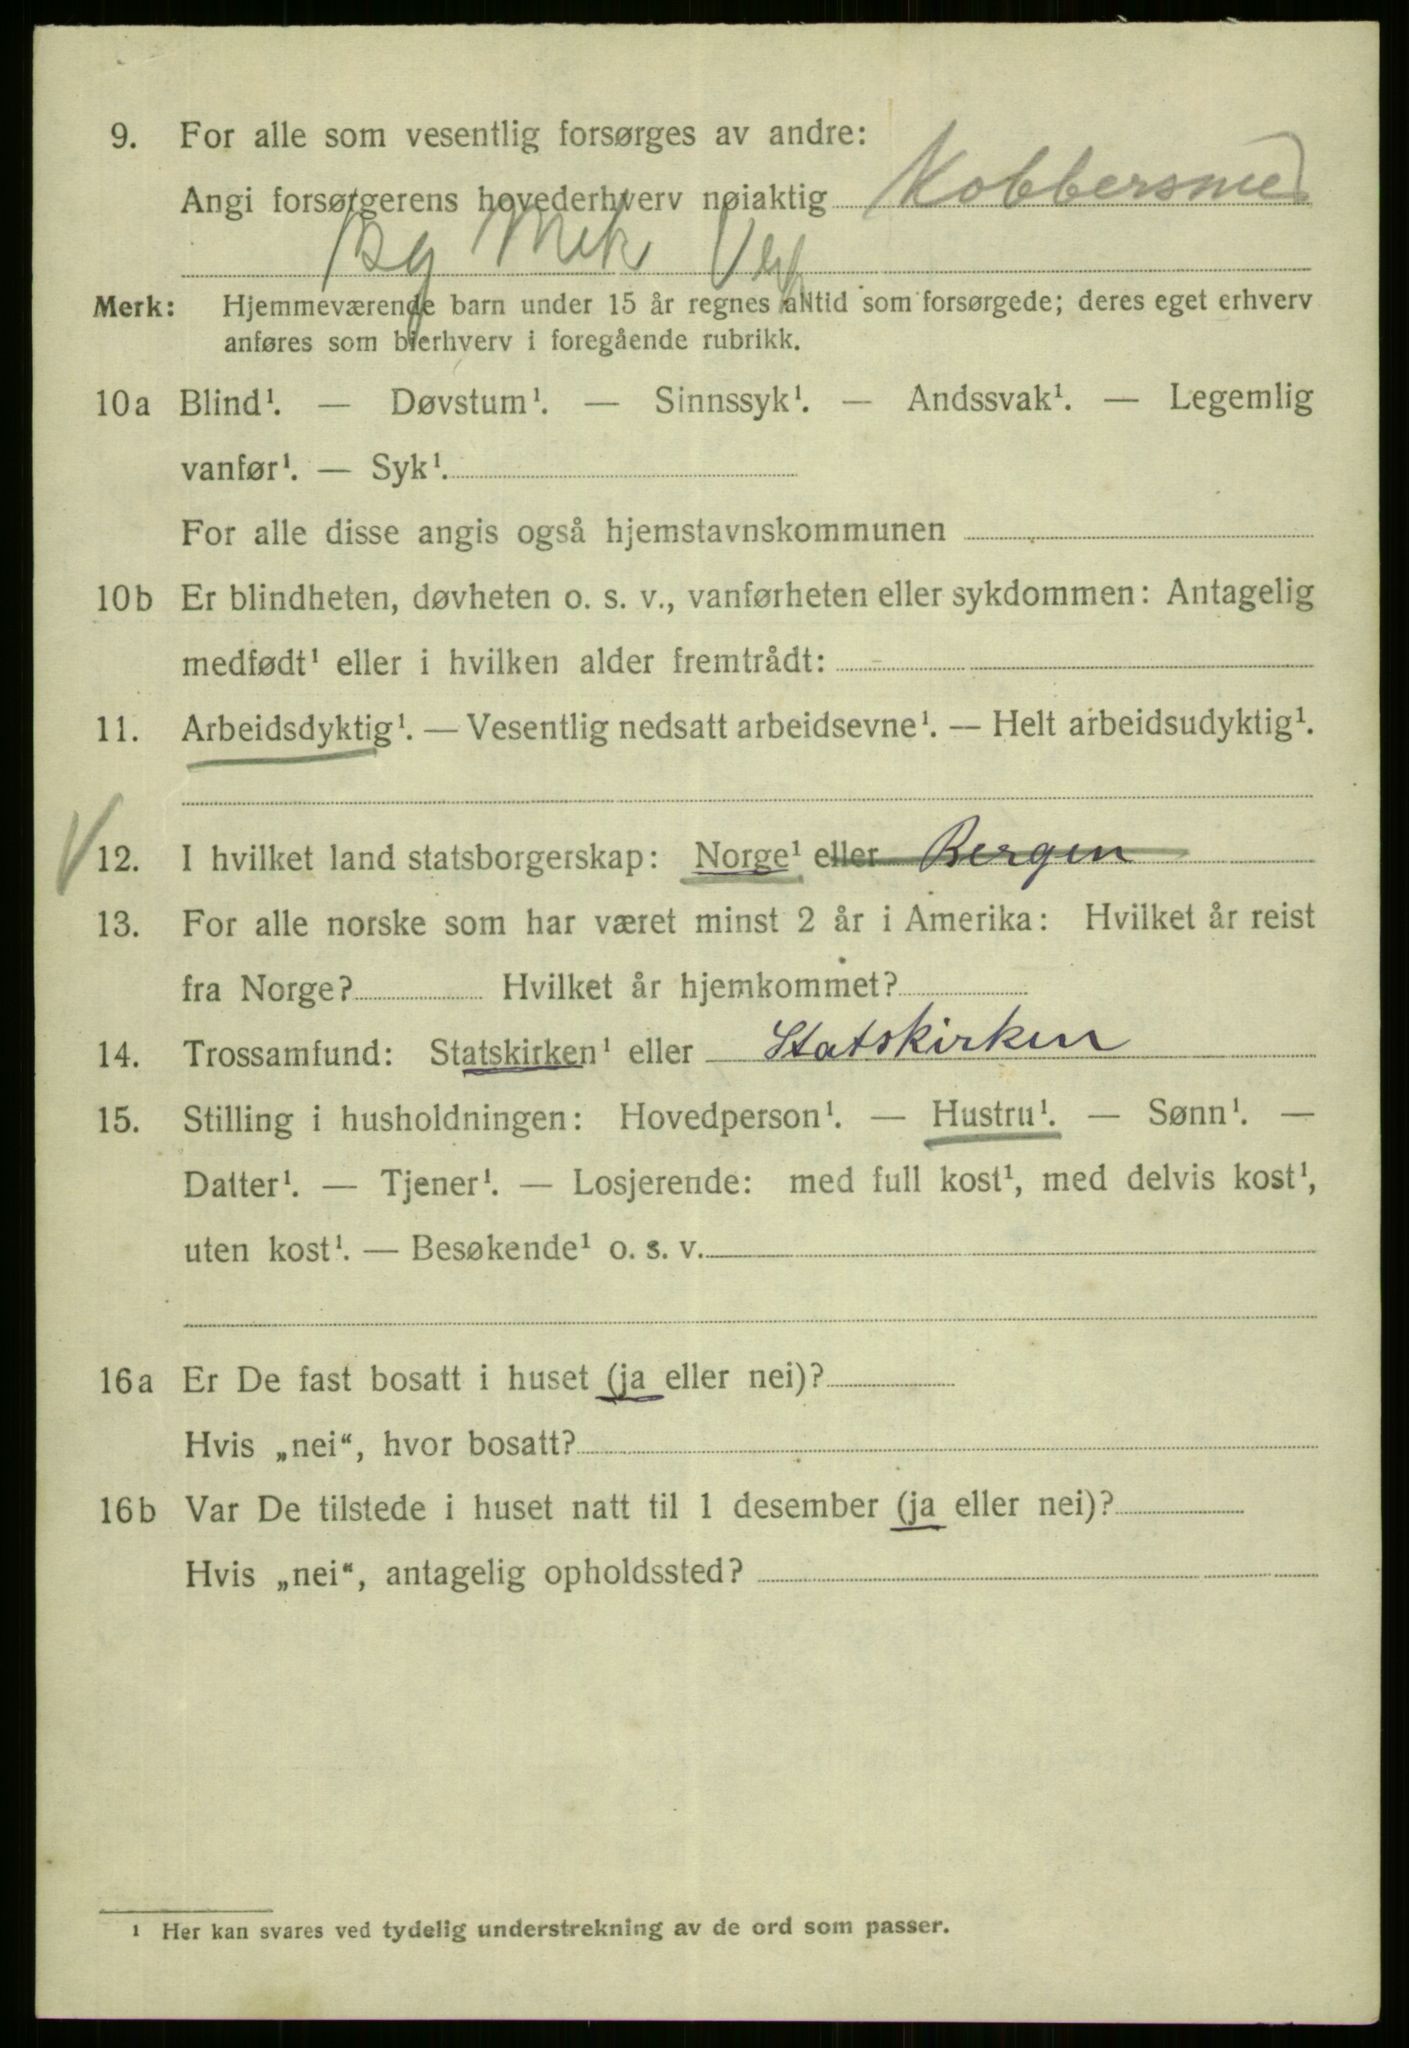 9. For alle som vesentlig forsørges av andre:
Angi forsørgerens hovederhverv nøiaktig Kobbersmed
Bg Mek Verf
Merk: Hjemmeværende barn under 15 år regnes alltid som forsørgede; deres eget erhverv
anføres som bierhverv i foregående rubrikk.
10a Blind¹. — Døvstum¹. — Sinnssyk¹. — Andssvak¹. — Legemlig
vanfør¹. — Syk¹.
For alle disse angis også hjemstavnskommunen
10b Er blindheten, døvheten o. s. v., vanførheten eller sykdommen: Antagelig
medfødt¹ eller i hvilken alder fremtrådt:
11. Arbeidsdyktig¹. — Vesentlig nedsatt arbeidsevne¹. — Helt arbeidsudyktig¹.
12. I hvilket land statsborgerskap: Norge¹ eller Bergen
13. For alle norske som har været minst 2 år i Amerika: Hvilket år reist
fra Norge? Hvilket år hjemkommet?
14. Trossamfund: Statskirken¹ eller Statskirken
15. Stilling i husholdningen: Hovedperson¹. — Hustru¹. — Sønn¹. —
Datter¹. — Tjener¹. — Losjerende: med full kost¹, med delvis kost¹,
uten kost¹. — Besøkende¹ o. s. v.
16a Er De fast bosatt i huset (ja eller nei)?
Hvis „nei“, hvor bosatt?
16b Var De tilstede i huset natt til 1 desember (ja eller nei)?
Hvis „nei“, antagelig opholdssted?
¹ Her kan svares ved tydelig understrekning av de ord som passer.